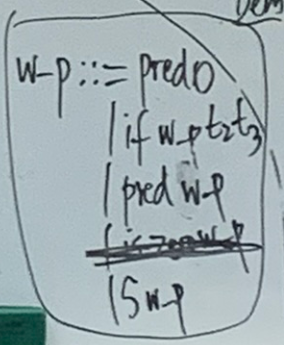 Dem
w-p ::= pred 0
| if w-p t₂ t₃
| pred w-p
| iszero w-p
| S w-p